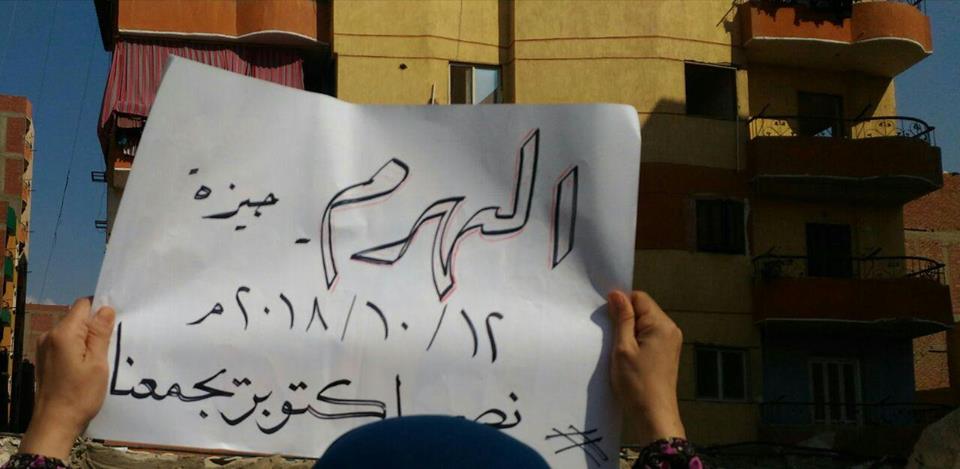 الهرم - جيزة
١٢/١٠/٢٠١٨م
# نصر اكتوبر يجمعنا